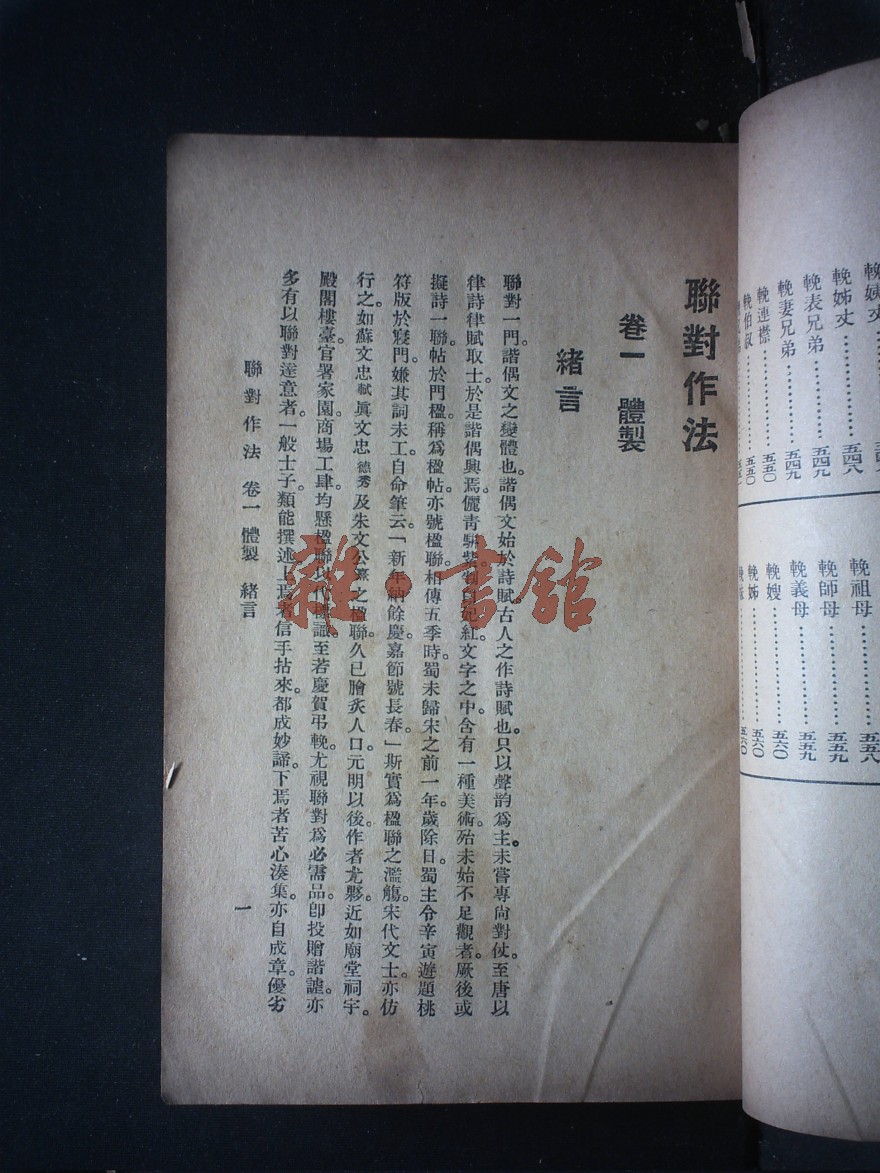 輓姊丈⋯⋯⋯⋯五四八
輓表兄弟⋯⋯⋯五四九
輓妻兄弟⋯⋯⋯五四九
輓連襟⋯⋯⋯⋯五五〇
輓伯叔⋯⋯⋯⋯五五〇
輓祖母⋯⋯⋯⋯五五八
輓師母⋯⋯⋯⋯五五九
輓義母⋯⋯⋯⋯五五九
輓嫂⋯⋯⋯⋯⋯五六〇
輓姊⋯⋯⋯⋯⋯五六〇
聯對作法
卷一 體製
緒言
聯對一門。諧偶文之變體也。諧偶文始於詩賦。古人之作詩賦也。只以聲韵爲主。未嘗專尙對仗。至唐以
律詩律賦取士。於是諧偶興焉。儷青騈紫。勻白妃紅。文字之中。含有一種美術。殆未始不足觀者。厥後或
擬詩一聯。帖於門楹。稱爲楹帖。亦號楹聯。相傳五季時。蜀未歸宋之前一年。歲除日。蜀主令辛寅遊題桃
符版於寢門。嫌其詞未工。自命筆云。「新年納餘慶。嘉節號長春。」斯實爲楹聯之濫觴。宋代文士。亦仿
行之。如蘇文忠軾眞文忠德秀及朱文公熹之楹聯。久已膾炙人口。元明以後。作者尤夥。近如廟堂祠宇。
殿閣樓臺。官署家園。商場工肆。均懸楹聯。以代標識。至若慶賀弔輓。尤視聯對爲必需品。卽投贈諧謔。亦
多有以聯對達意者。一般士子。類能撰述。上焉者信手拈來。都成妙諦。下焉者苦心湊集。亦自成章。優劣
聯對作法 卷一 體製 緒言
一
雜·書館